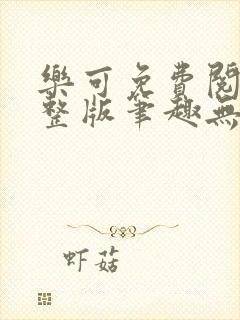 樂可免費閱
整版筆趣無
虾菇